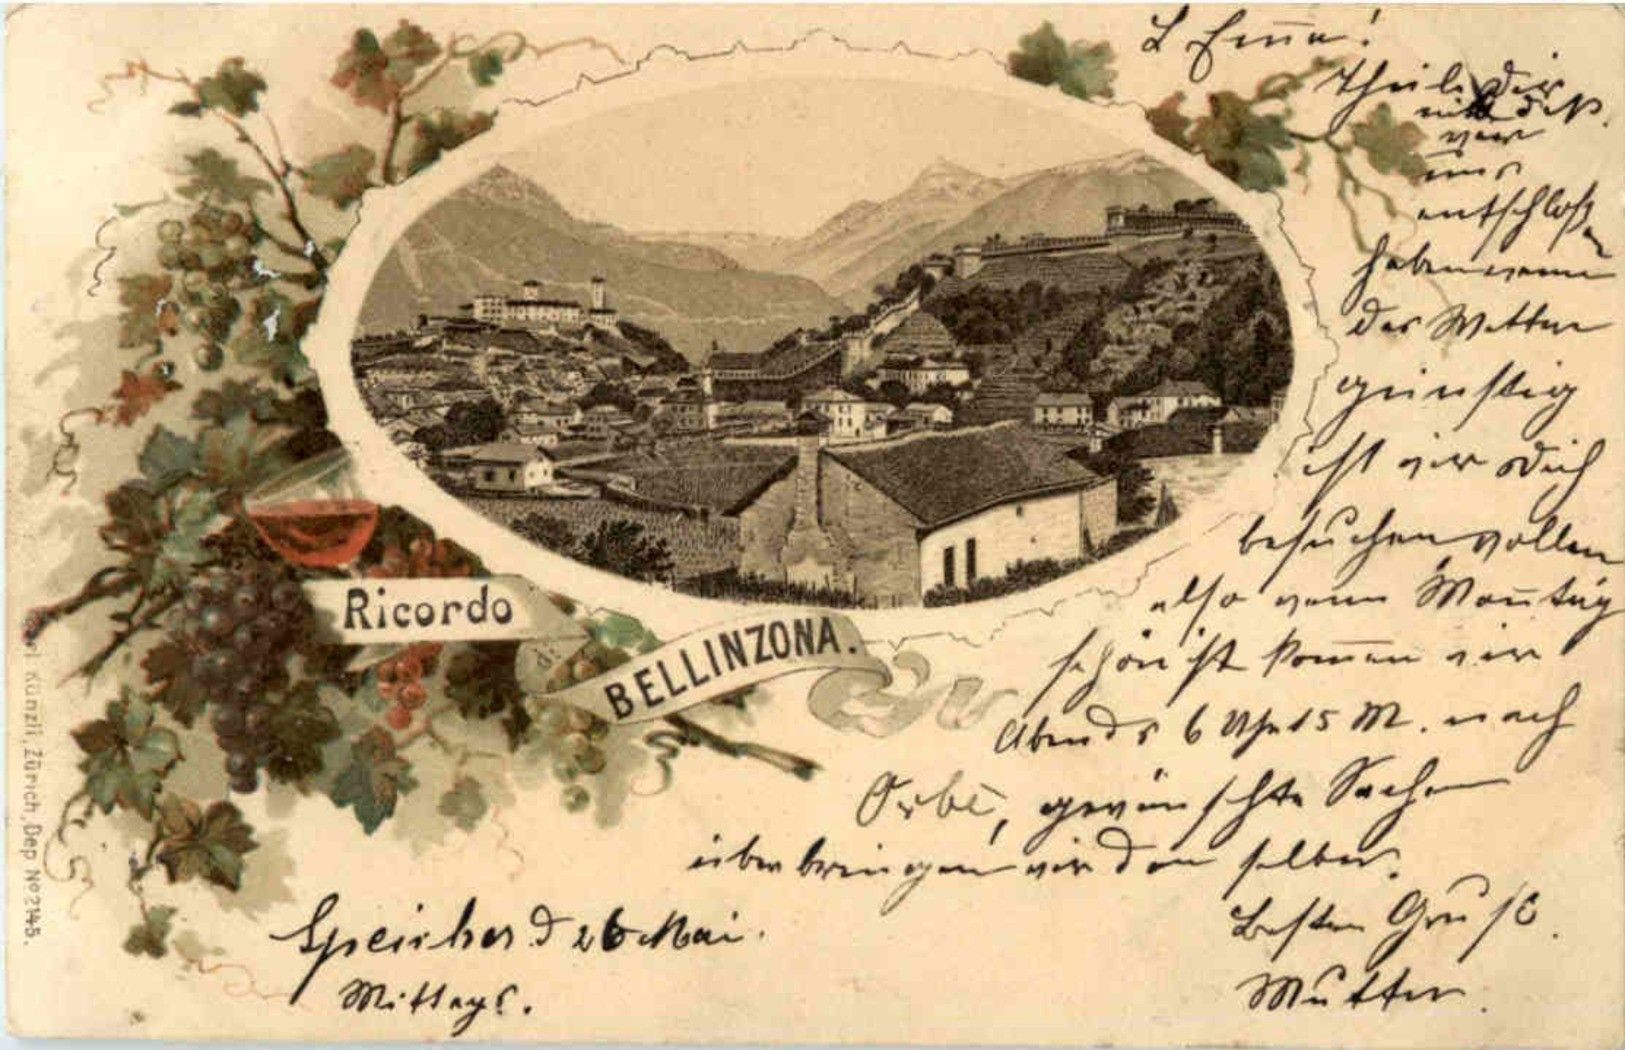 L Emma!
Theile Dir
mit daß
wir
uns
entschloßen
haben wenn
das Wetter
günstig
ist wir Dich
besuchen wollen
also wenn Montag
schön ist kommen wir
Abends 6 Uhr 15 M. nach
Orbe, gewünschte Sachen
überbringen wir dan selber.
Besten Gruß.
Mutter.
Speicher d 26 Mai.
Mittags.
Ricordo
di
BELLINZONA.
Künzli, Zürich, Dep № 2145.